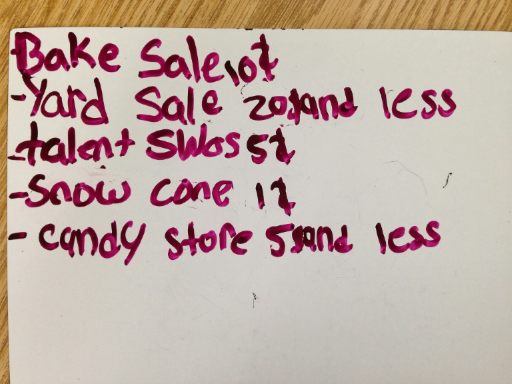 -Bake Sale 10¢
-Yard Sale 20¢ and less
-talent Shos 5¢
-Snow cone 1¢
- candy store 5$ and less